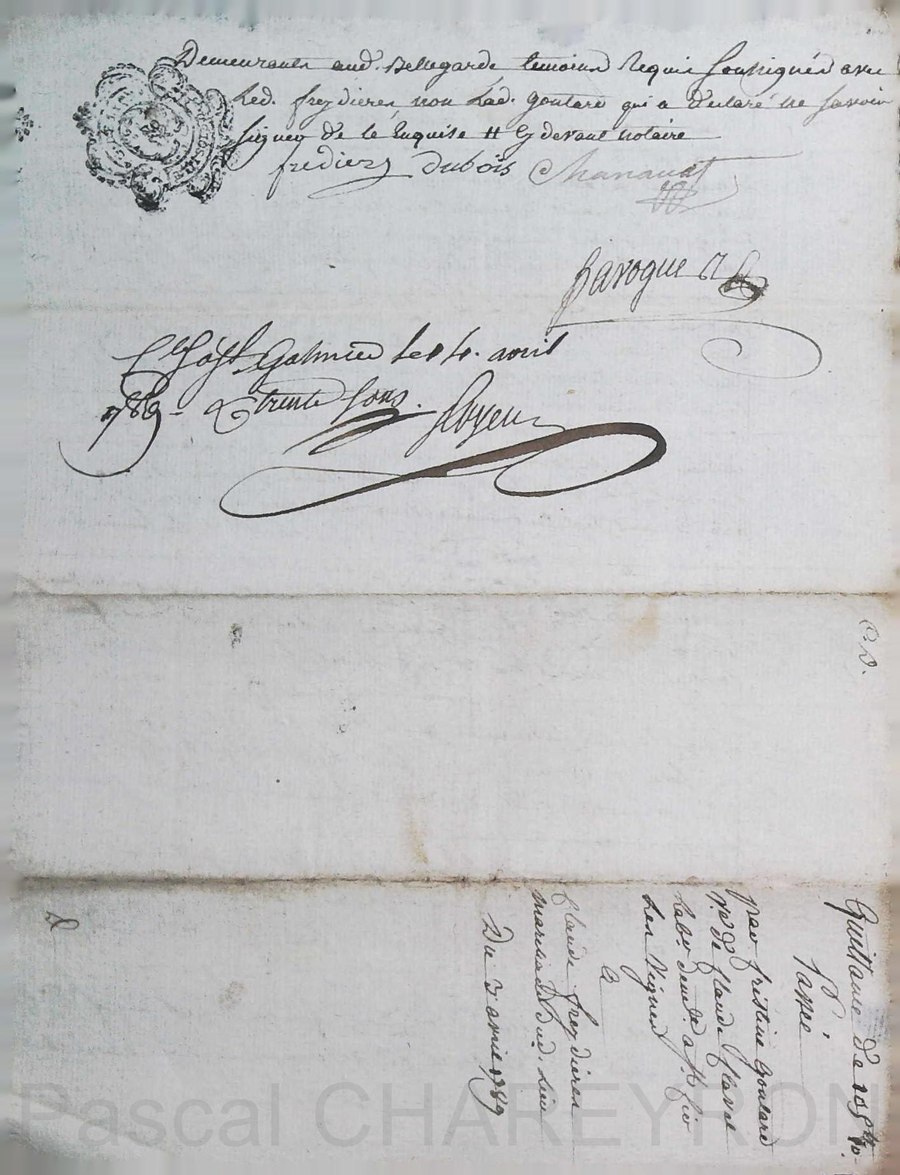 Demeurants aud. Bellegarde temoins Requis soussignés avec
led. freydieres non lad. goutard qui a declaré ne savoir
signer de ce Enquise # Cy devant notaire
frediere dubois Chanavat
Baroque
Galmier le 14. avril
1789 - trente sous.
C. D.
Quittance de
passée
par Cristine Goutard
ve de Claude Clavel
labr demt a St
Les Vignes
a
Claude freydieres
marchand dud. lieu
Du 3 avril 1789
Pascal CHAREYRON